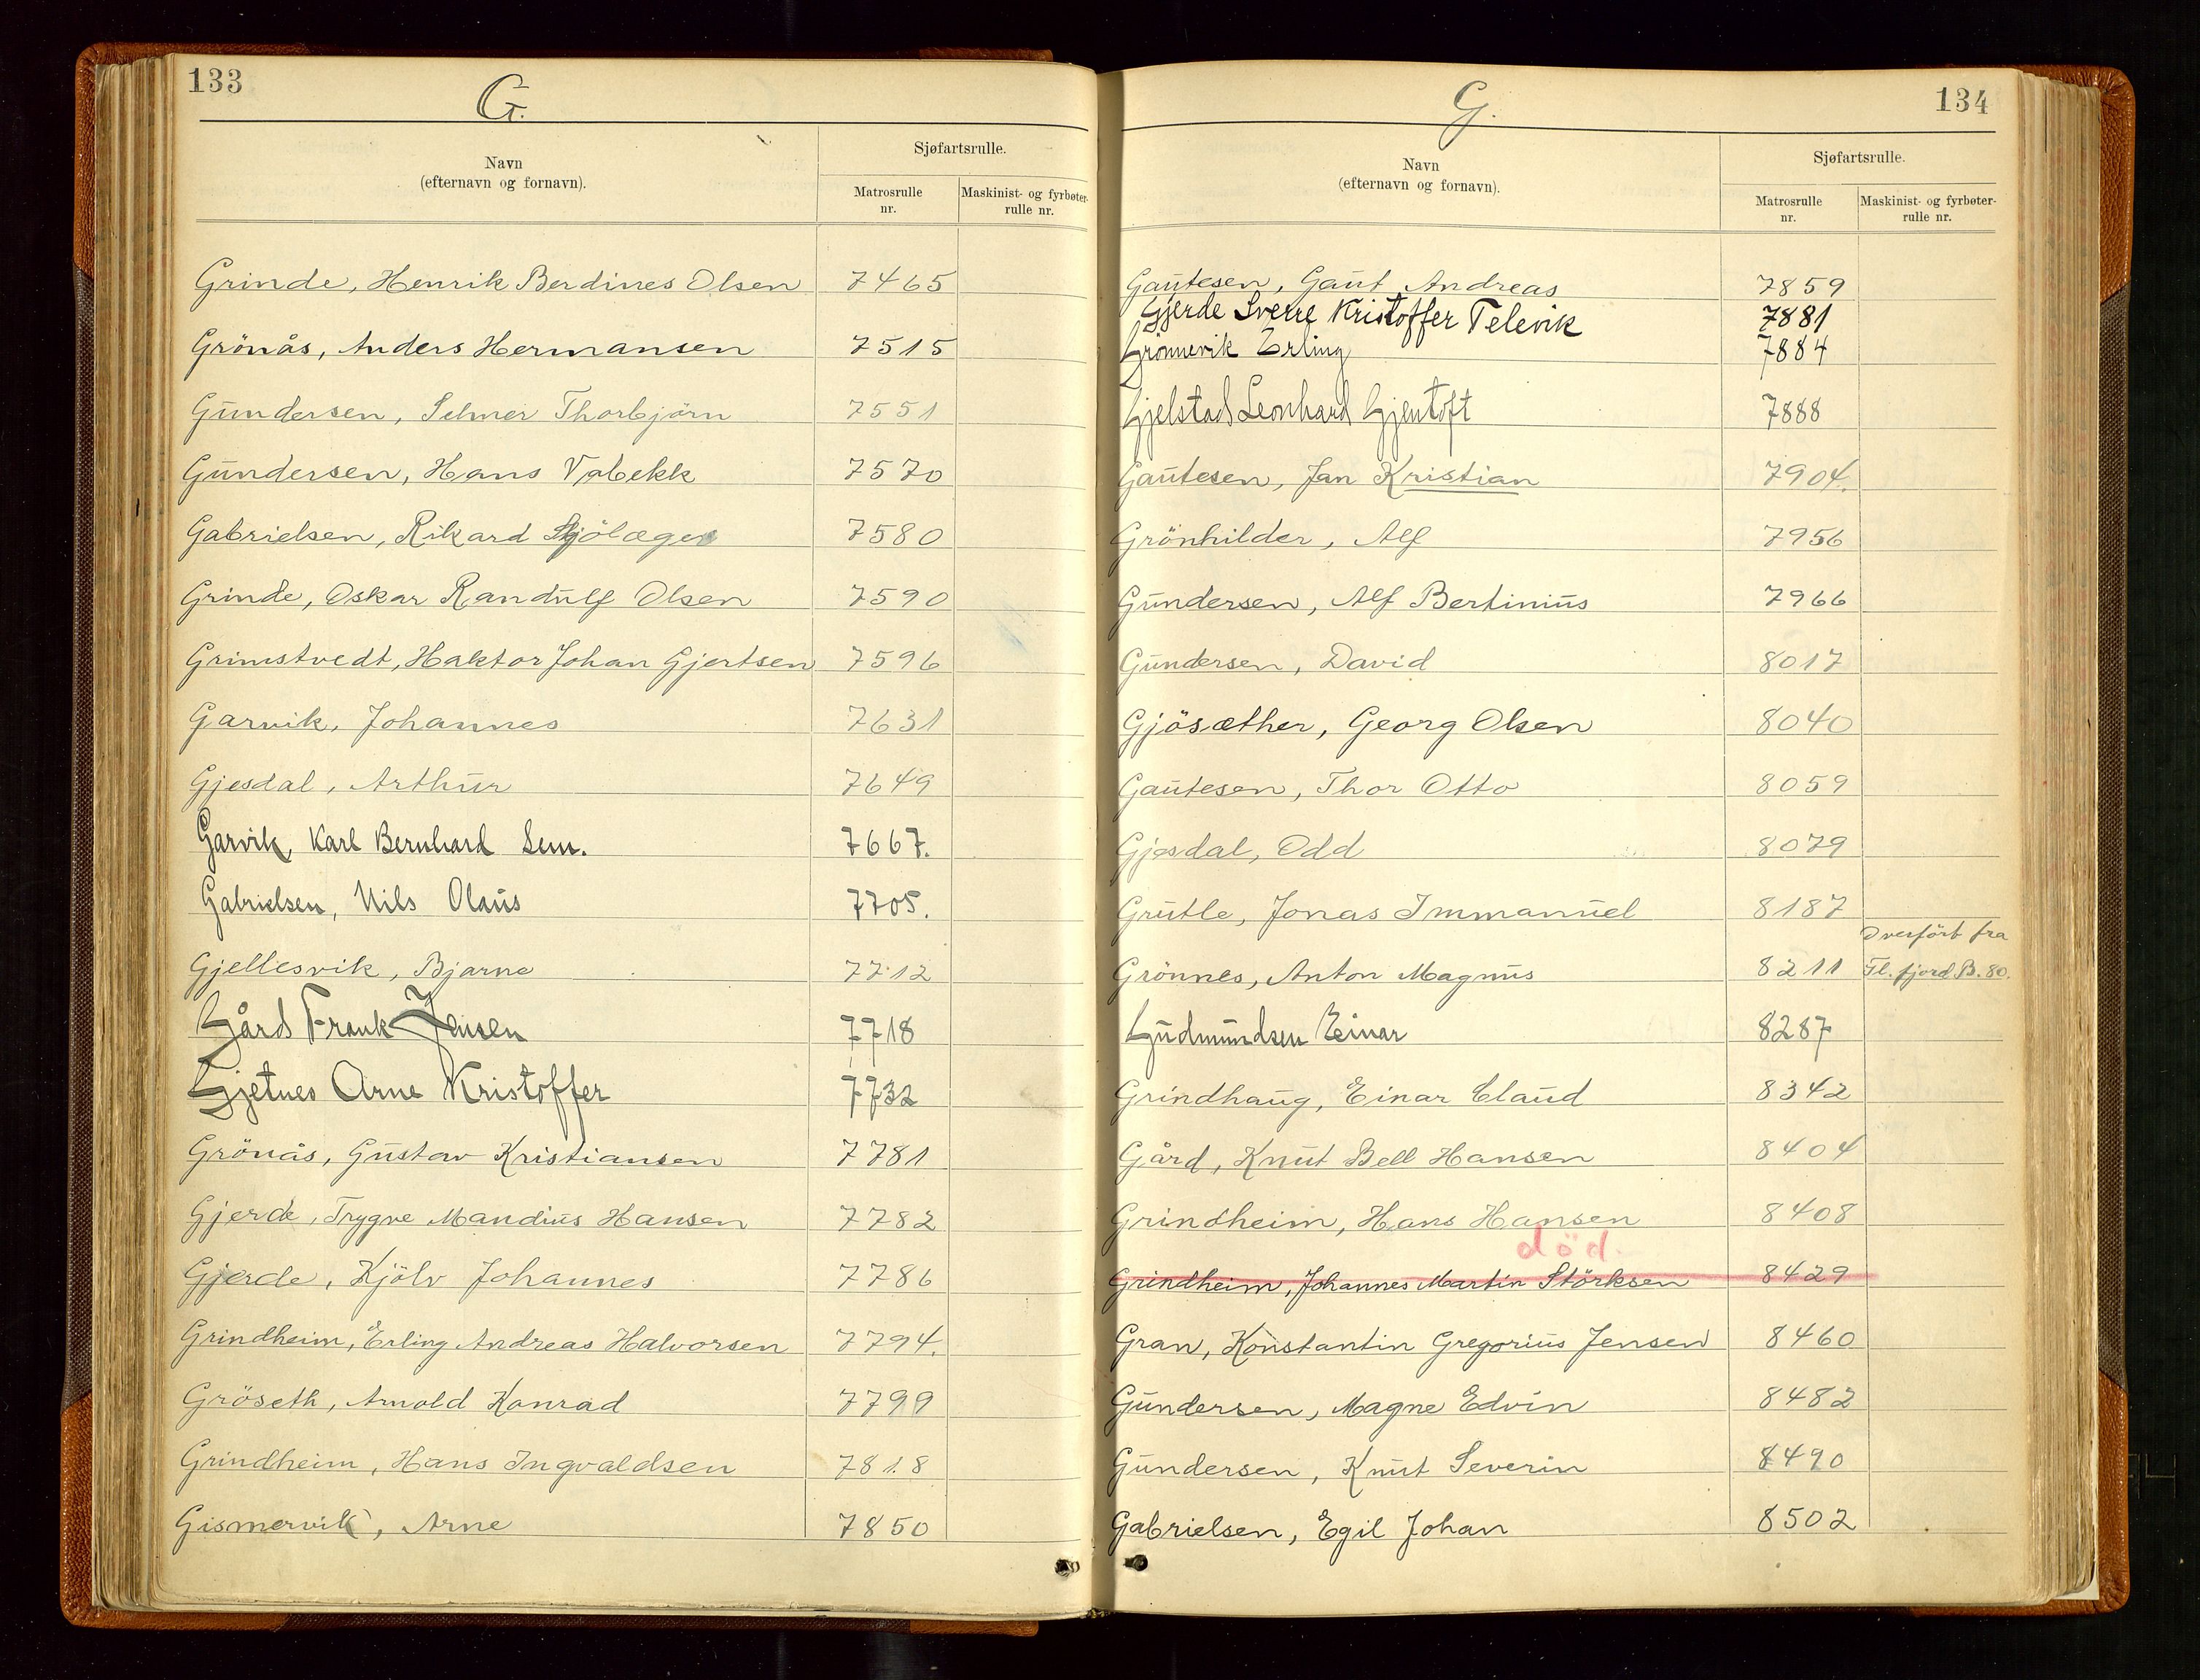 133
G.
Navn
(efternavn og fornavn).
Sjøfartsrulle.
Matrosrulle nr.
Maskinist- og fyrbøter-rulle nr.
Grinde, Henrik Berdines Olsen 7465
Grönås, Anders Hermansen 7515
Gundersen, Selmer Thorbjörn 7551
Gundersen, Hans Vabekk 7570
Gabrielsen, Rikard 7580
Grinde, Oskar Randulf Olsen 7590
Grimstvedt, Haktor Johan Gjertsen 7596
Garvik, Johannes 7631
Gjesdal, Arthur 7649
Garvik, Karl Bernhard Sem. 7667.
Gabrielsen, Nils Olaus 7705.
Gjellesvik, Bjarne 7712
Gård Frank Jensen 7718
Gjetnes Arne Kristoffer 7732
Grönås, Gustav Kristiansen 7781
Gjerde, Trygve Mandius Hansen 7782
Gjerde, Kjölv Johannes 7786
Grindheim, Erling Andreas Halvorsen 7794.
Gröseth, Arnold Konrad 7799
Grindheim, Hans Ingvaldsen 7818
Gismervik, Arne 7850
134
G.
Navn
(efternavn og fornavn).
Sjøfartsrulle.
Matrosrulle nr.
Maskinist- og fyrbøter-rulle nr.
Gautesen, Gaut Andreas 7859
Gjerde Sverre Kristoffer Televik 7881
Grönnevik Erling 7884
Gjelstad Leonhard Gjentoft 7888
Gautesen, Jan Kristian 7904.
Grönhilder, Alf 7956
Gundersen, Alf Bertinius 7966
Gundersen, David 8017
Gjösæther, Georg Olsen 8040
Gautesen, Thor Otto 8059
Gjesdal, Odd 8079
Grutle, Jonas Immanuel 8187
Overfört fra
Grönnes, Anton Magnus 8211 Fl. fjord B. 80.
Gudmundsen Einar 8287
Grindhaug, Einar Claud 8342
Gård, Knut Bell Hansen 8404
Grindheim, Hans Hansen 8408
död.
Grindheim, Johannes Martin Störksen 8429
Gran, Konstantin Gregorius Jensen 8460
Gundersen, Magne Edvin 8482
Gundersen, Knut Severin 8490
Gabrielsen, Egil Johan 8502